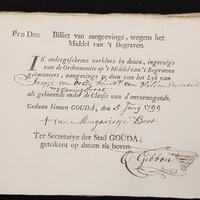 Pro Deo. Billet van aangeevinge, wegens het
Middel van 't Begraven.
IK ondergeschreve verklare by deezen, ingevolge
van de Ordonnantie op 't Middel van 't Begraven
geëmaneert, aangeevinge te doen van het Lyk van
van
als gehorende onder de Classis van d' onvermogende.
Gedaan binnen GOUDA, den 5 Juny 1799
+ van Margarietje Boot
Ter Secretarye der Stad GOUDA,
getekent op datum als boven.
Gibbon